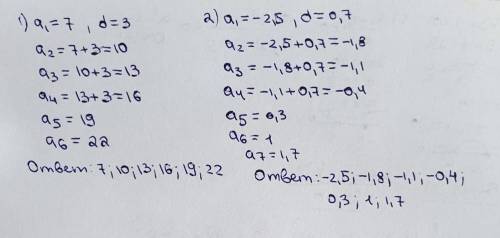 1) a₁=7 , d=3
a₂=7+3=10
a₃=10+3=13
a₄=13+3=16
a₅=19
a₆=22
Ответ: 7; 10; 13; 16; 19; 22
2) a₁=-2,5, d=0,7
a₂=-2,5+0,7=-1,8
a₃=-1,8+0,7=-1,1
a₄=-1,1+0,7=-0,4
a₅=0,3
a₆=1
a₇=1,7
Ответ: -2,5; -1,8; -1,1, -0,4;
0,3; 1; 1,7